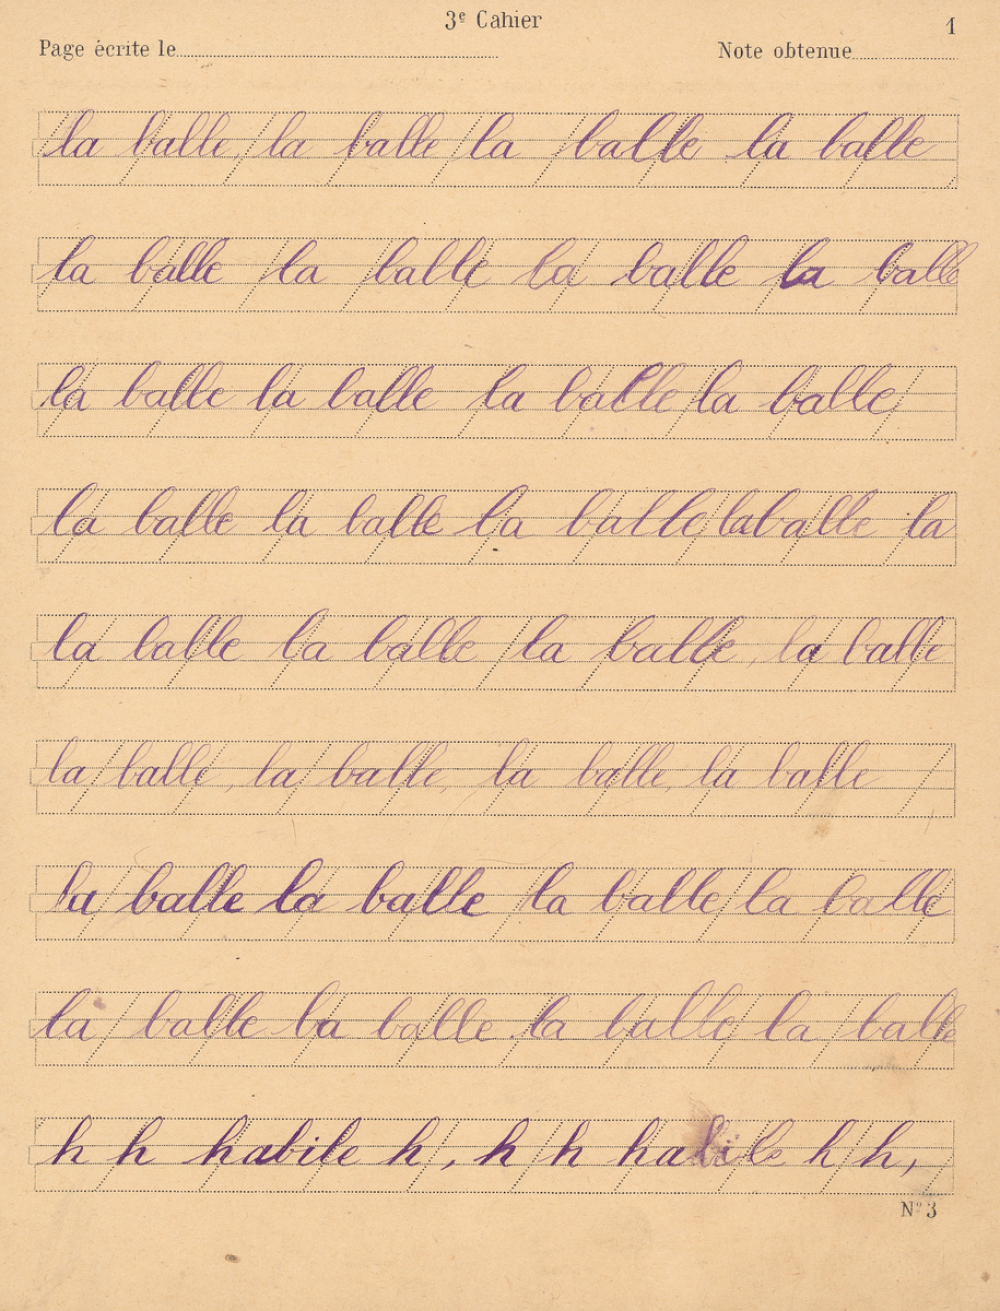 3e Cahier
1
Page écrite le
Note obtenue
la balle, la balle la balle la balle
la balle la balle la balle la balle
la balle la balle la balle la balle
la balle la balle la balle la balle la
la balle la balle la balle, la balle
la balle, la balle, la balle, la balle
la balle la balle la balle la balle
la balle la balle la balle la balle
h h habile h, h h habile h h,
No 3